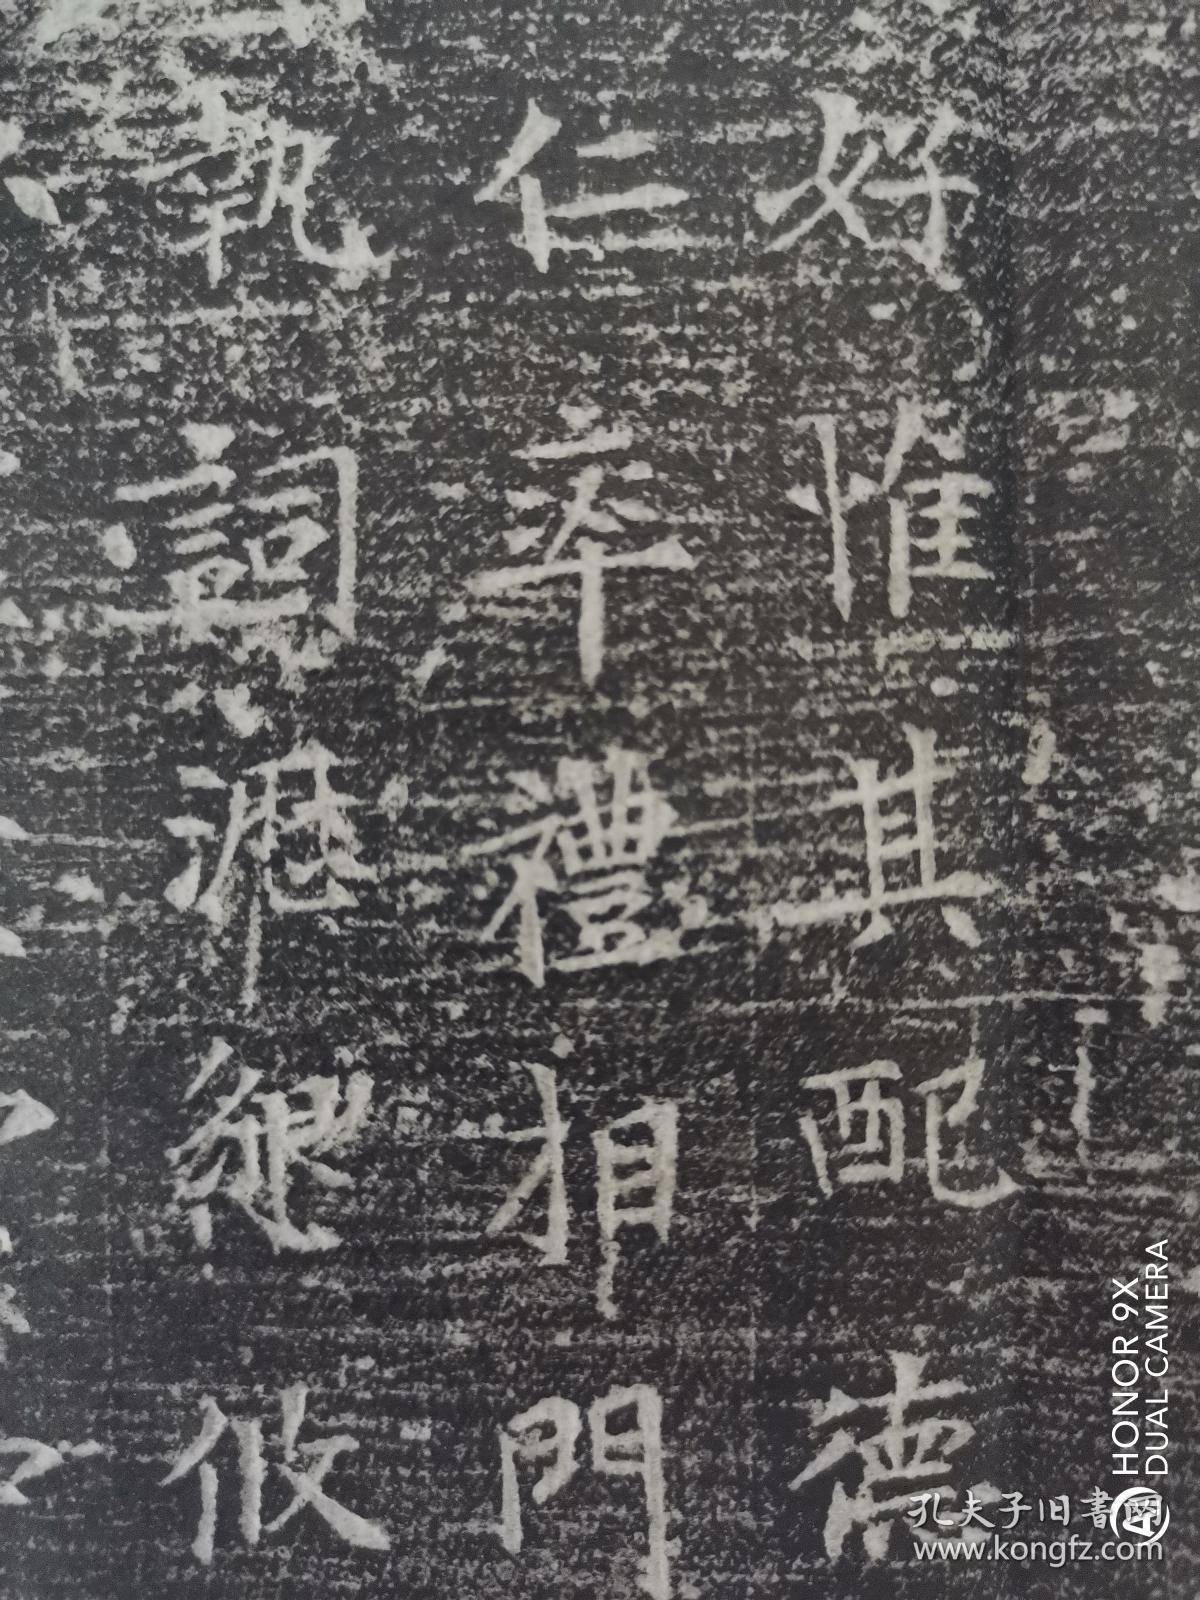 好惟其配德
仁率禮相門
執詞瀝懇攸
HONOR 9X
DUAL CAMERA
孔夫子旧書网
www.kongfz.com